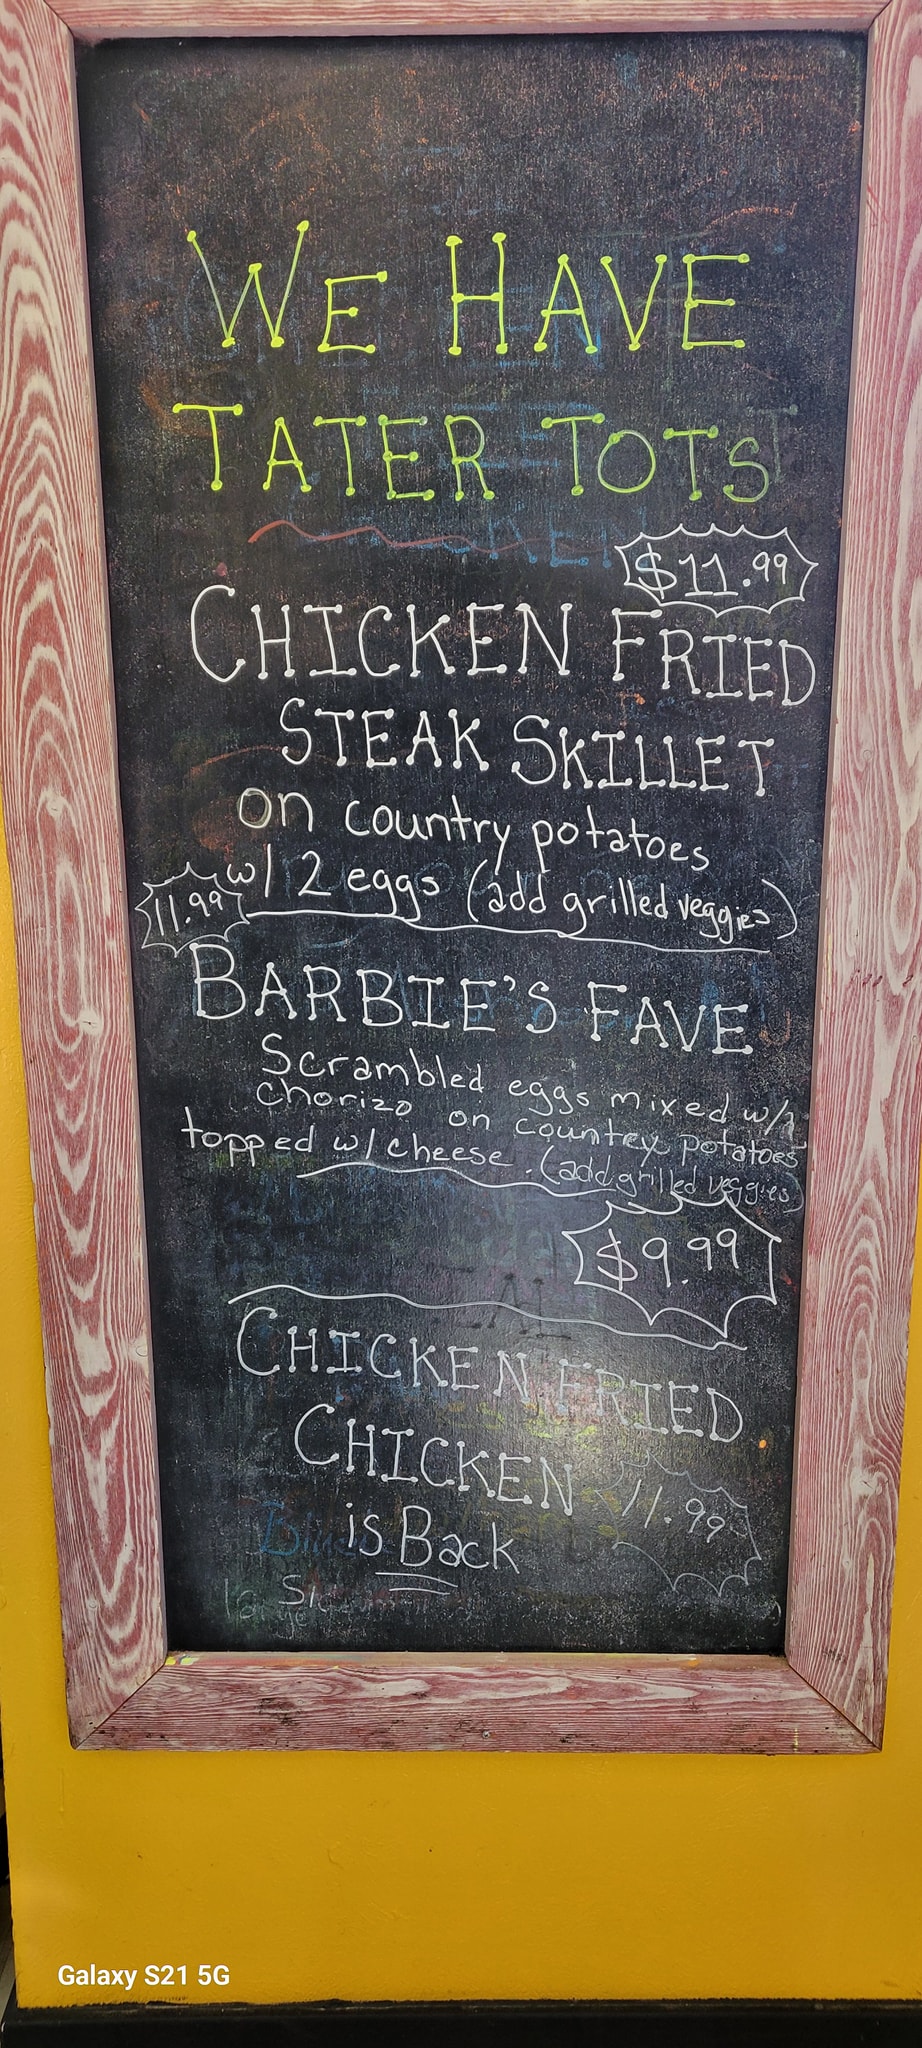 WE HAVE
TATER TOTS
$11.99
CHICKEN FRIED
STEAK SKILLET
on country potatoes
w/ 2 eggs (add grilled veggies)
11.99
BARBIE'S FAVE
Scrambled eggs mixed w/
chorizo on country potatoes
topped w/ cheese. (add grilled veggies)
$9.99
CHICKEN FRIED
CHICKEN
11.99
is Back
Galaxy S21 5G